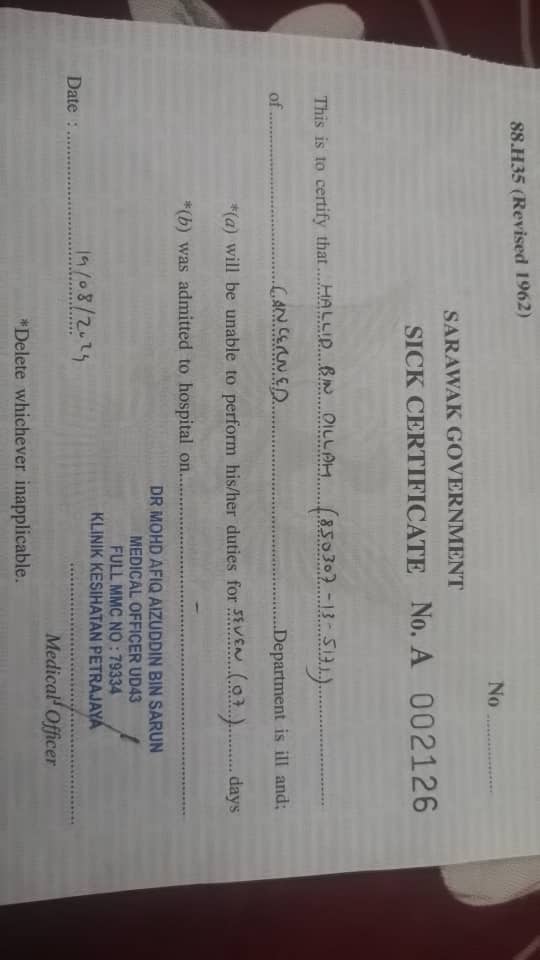 88.H35 (Revised 1962)
No ....................
SARAWAK GOVERNMENT
SICK CERTIFICATE No. A 002126
This is to certify that....HALLID BIN DILLAH (850307-13-5171)....................
of..............................CONCERNED..............................Department is ill and:
*(a) will be unable to perform his/her duties for SEVEN (07) ........ days
*(b) was admitted to hospital on.................... - ....................
DR MOHD AFIQ AIZUDDIN BIN SARUN
MEDICAL OFFICER UD43
FULL MMC NO : 79334
KLINIK KESIHATAN PETRAJAYA
Date : ....................19/08/2024
Medical Officer
*Delete whichever inapplicable.